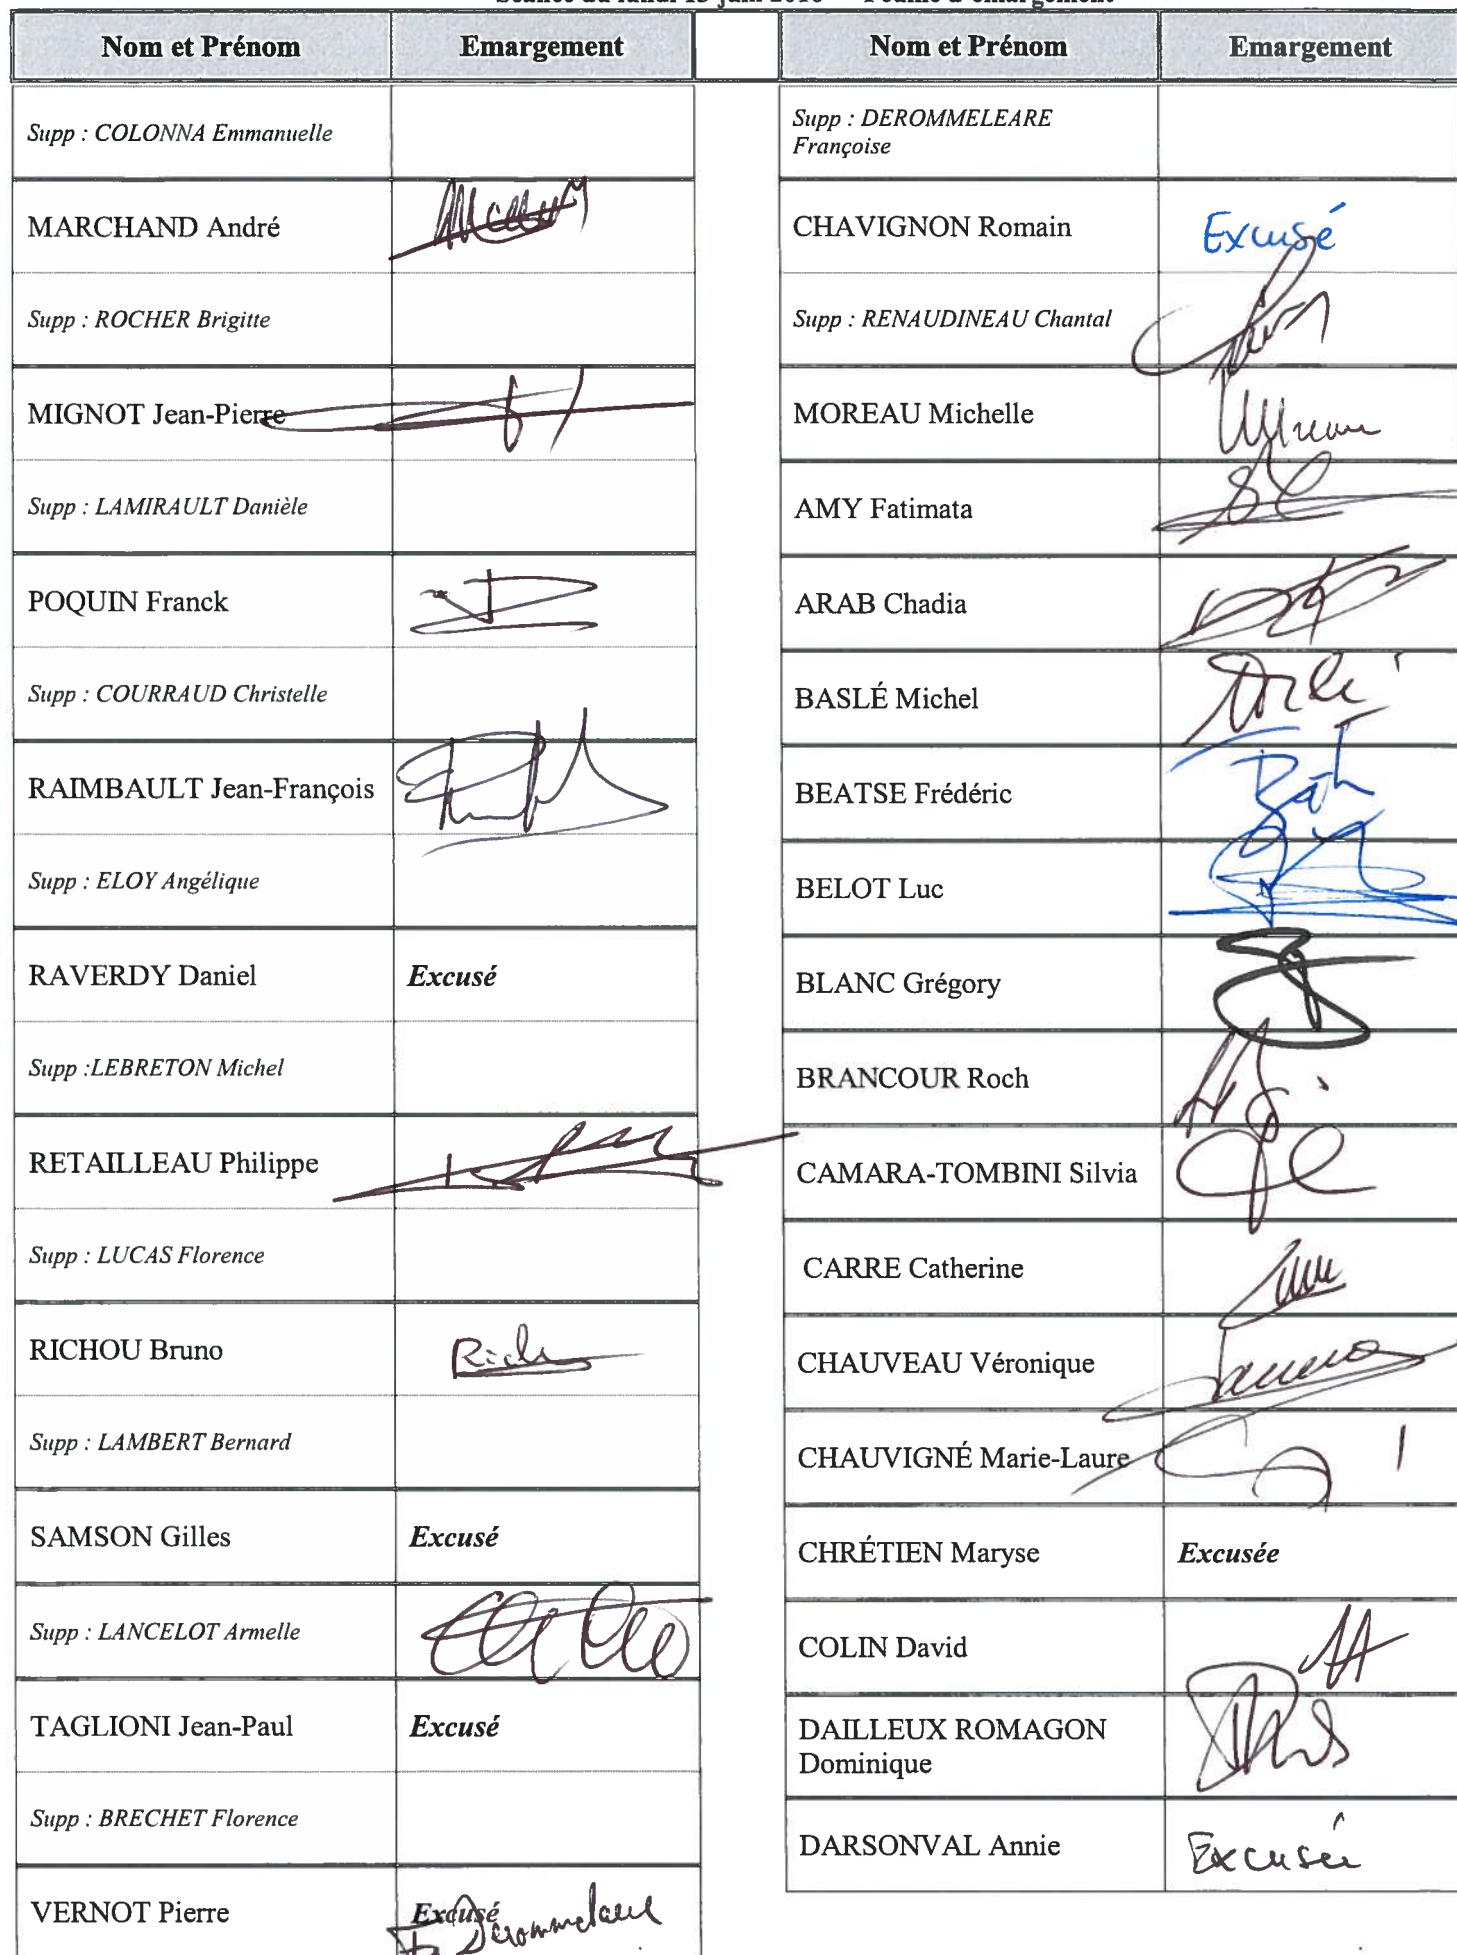 Séance du lundi 13 juin 2016 – Feuille d'émargement
Nom et Prénom Emargement
Supp : COLONNA Emmanuelle
MARCHAND André
Supp : ROCHER Brigitte
MIGNOT Jean-Pierre
Supp : LAMIRAULT Danièle
POQUIN Franck
Supp : COURRAUD Christelle
RAIMBAULT Jean-François
Supp : ELOY Angélique
RAVERDY Daniel Excusé
Supp :LEBRETON Michel
RETAILLEAU Philippe
Supp : LUCAS Florence
RICHOU Bruno
Supp : LAMBERT Bernard
SAMSON Gilles Excusé
Supp : LANCELOT Armelle
TAGLIONI Jean-Paul Excusé
Supp : BRECHET Florence
VERNOT Pierre Excusé
Nom et Prénom Emargement
Supp : DEROMMELEARE
Françoise
CHAVIGNON Romain Excusé
Supp : RENAUDINEAU Chantal
MOREAU Michelle
AMY Fatimata
ARAB Chadia
BASLÉ Michel
BEATSE Frédéric
BELOT Luc
BLANC Grégory
BRANCOUR Roch
CAMARA-TOMBINI Silvia
CARRE Catherine
CHAUVEAU Véronique
CHAUVIGNÉ Marie-Laure
CHRÉTIEN Maryse Excusée
COLIN David
DAILLEUX ROMAGON
Dominique
DARSONVAL Annie Excusée